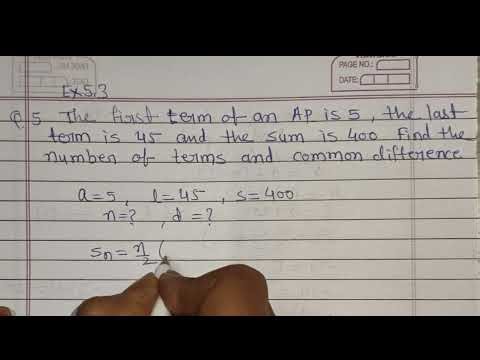 PAGE NO.:
DATE:
Ex 5.3
Q.5 The first term of an AP is 5, the last
term is 45 and the sum is 400 Find the
number of terms and common difference
a=5, l=45, s=400
n=?, d=?
Sn = n/2 (